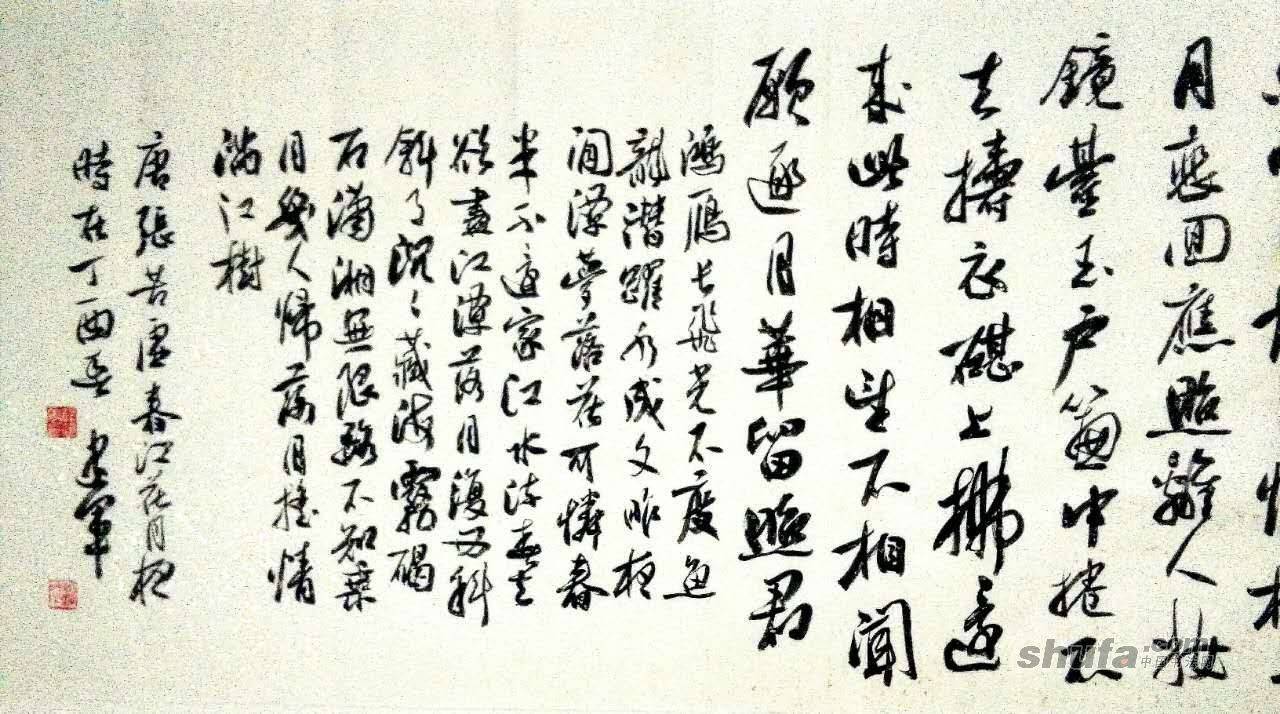 月裴回應照離人妝
鏡臺玉戶簾中捲不
去擣衣碪上拂還
來此時相望不相聞
願逐月華留照君
鴻鴈長飛光不度魚
龍潛躍水成文昨夜
閒潭夢落花可憐春
半不還家江水流春去
欲盡江潭落月復西斜
斜月沉々藏海霧碣
石瀟湘無限路不知乘
月幾人歸落月搖情
滿江樹
唐張若虛春江花月夜
時在丁酉 建軍
shufa
中国书法网